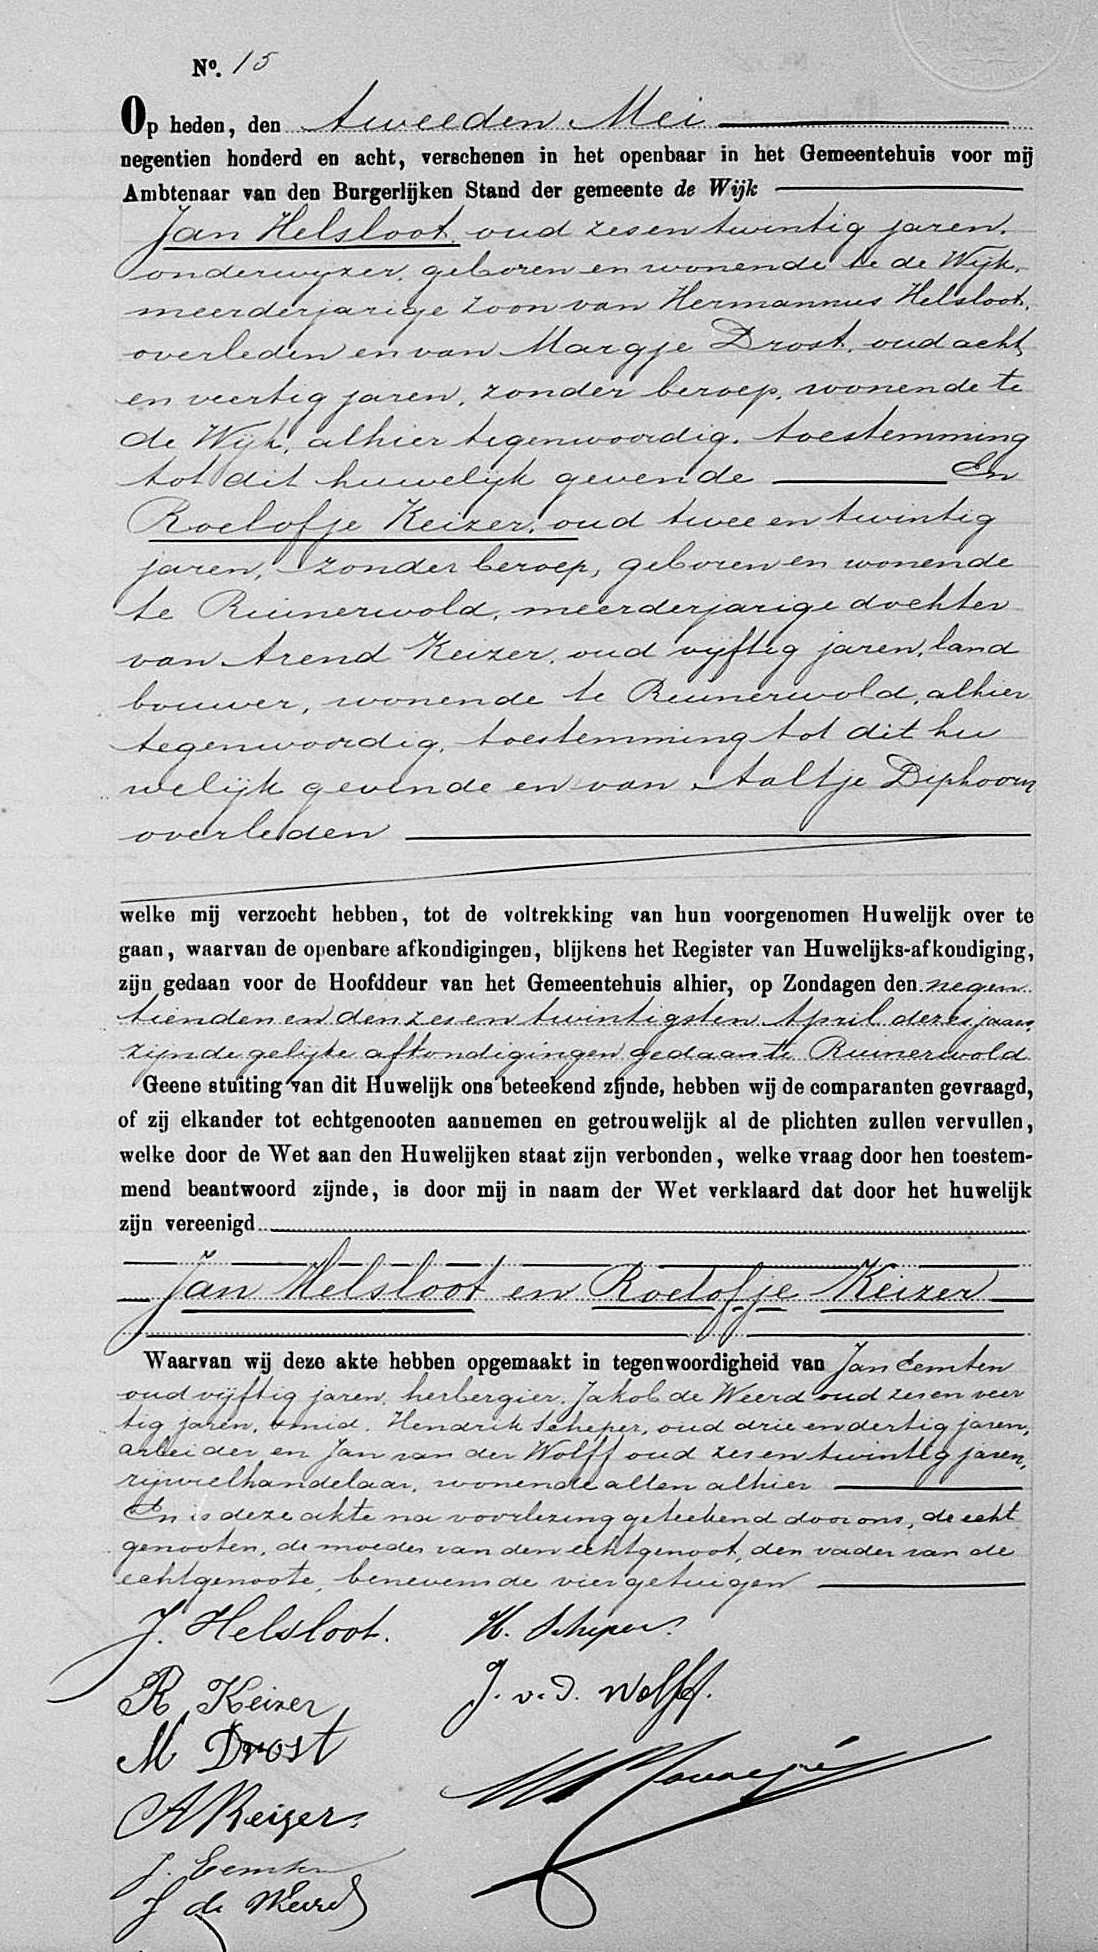 No. 15
Op heden, den tweeden Mei
negentien honderd en acht, verschenen in het openbaar in het Gemeentehuis voor mij
Ambtenaar van den Burgerlijken Stand der gemeente de Wijk
Jan Helsloot, oud zesentwintig jaren,
onderwijzer, geboren en wonende te de Wijk,
meerderjarige zoon van Hermannus Helsloot,
overleden en van Margje Drost, oud acht
en veertig jaren, zonder beroep, wonende te
de Wijk, alhier tegenwoordig, toestemming
tot dit huwelijk gevende En
Roelofje Keizer, oud twee en twintig
jaren, zonder beroep, geboren en wonende
te Ruinerwold, meerderjarige dochter
van Arend Keizer, oud vijftig jaren, land
bouwer, wonende te Ruinerwold, alhier
tegenwoordig, toestemming tot dit hu
welijk gevende en van Aaltje Diphoorn
overleden
welke mij verzocht hebben, tot de voltrekking van hun voorgenomen Huwelijk over te
gaan, waarvan de openbare afkondigingen, blijkens het Register van Huwelijks-afkondiging,
zijn gedaan voor de Hoofddeur van het Gemeentehuis alhier, op Zondagen den negen
tienden en den zesentwintigsten April dezes jaars,
zijnde gelijke afkondigingen gedaan te Ruinerwold
Geene stuiting van dit Huwelijk ons beteekend zijnde, hebben wij de comparanten gevraagd,
of zij elkander tot echtgenooten aannemen en getrouwelijk al de plichten zullen vervullen,
welke door de Wet aan den Huwelijken staat zijn verbonden, welke vraag door hen toestem-
mend beantwoord zijnde, is door mij in naam der Wet verklaard dat door het huwelijk
zijn vereenigd
Jan Helsloot en Roelofje Keizer
Waarvan wij deze akte hebben opgemaakt in tegenwoordigheid van Jan Eemten
oud vijftig jaren, herbergier, Jakob de Weerd oud zesenveer
tig jaren, smid, Hendrik Scheper, oud drie en dertig jaren,
arbeider en Jan van der Wolff oud zesentwintig jaren,
rijwielhandelaar, wonende allen alhier
En is deze akte na voorlezing geteekend door ons, de echt
genooten, de moeder van den echtgenoot, den vader van de
echtgenoote, benevens de vier getuigen
J. Helsloot. H. Scheper.
R Keizer J. v. d. Wolff.
M Drost
A Keizer.
J. Eemten
J de Weerd